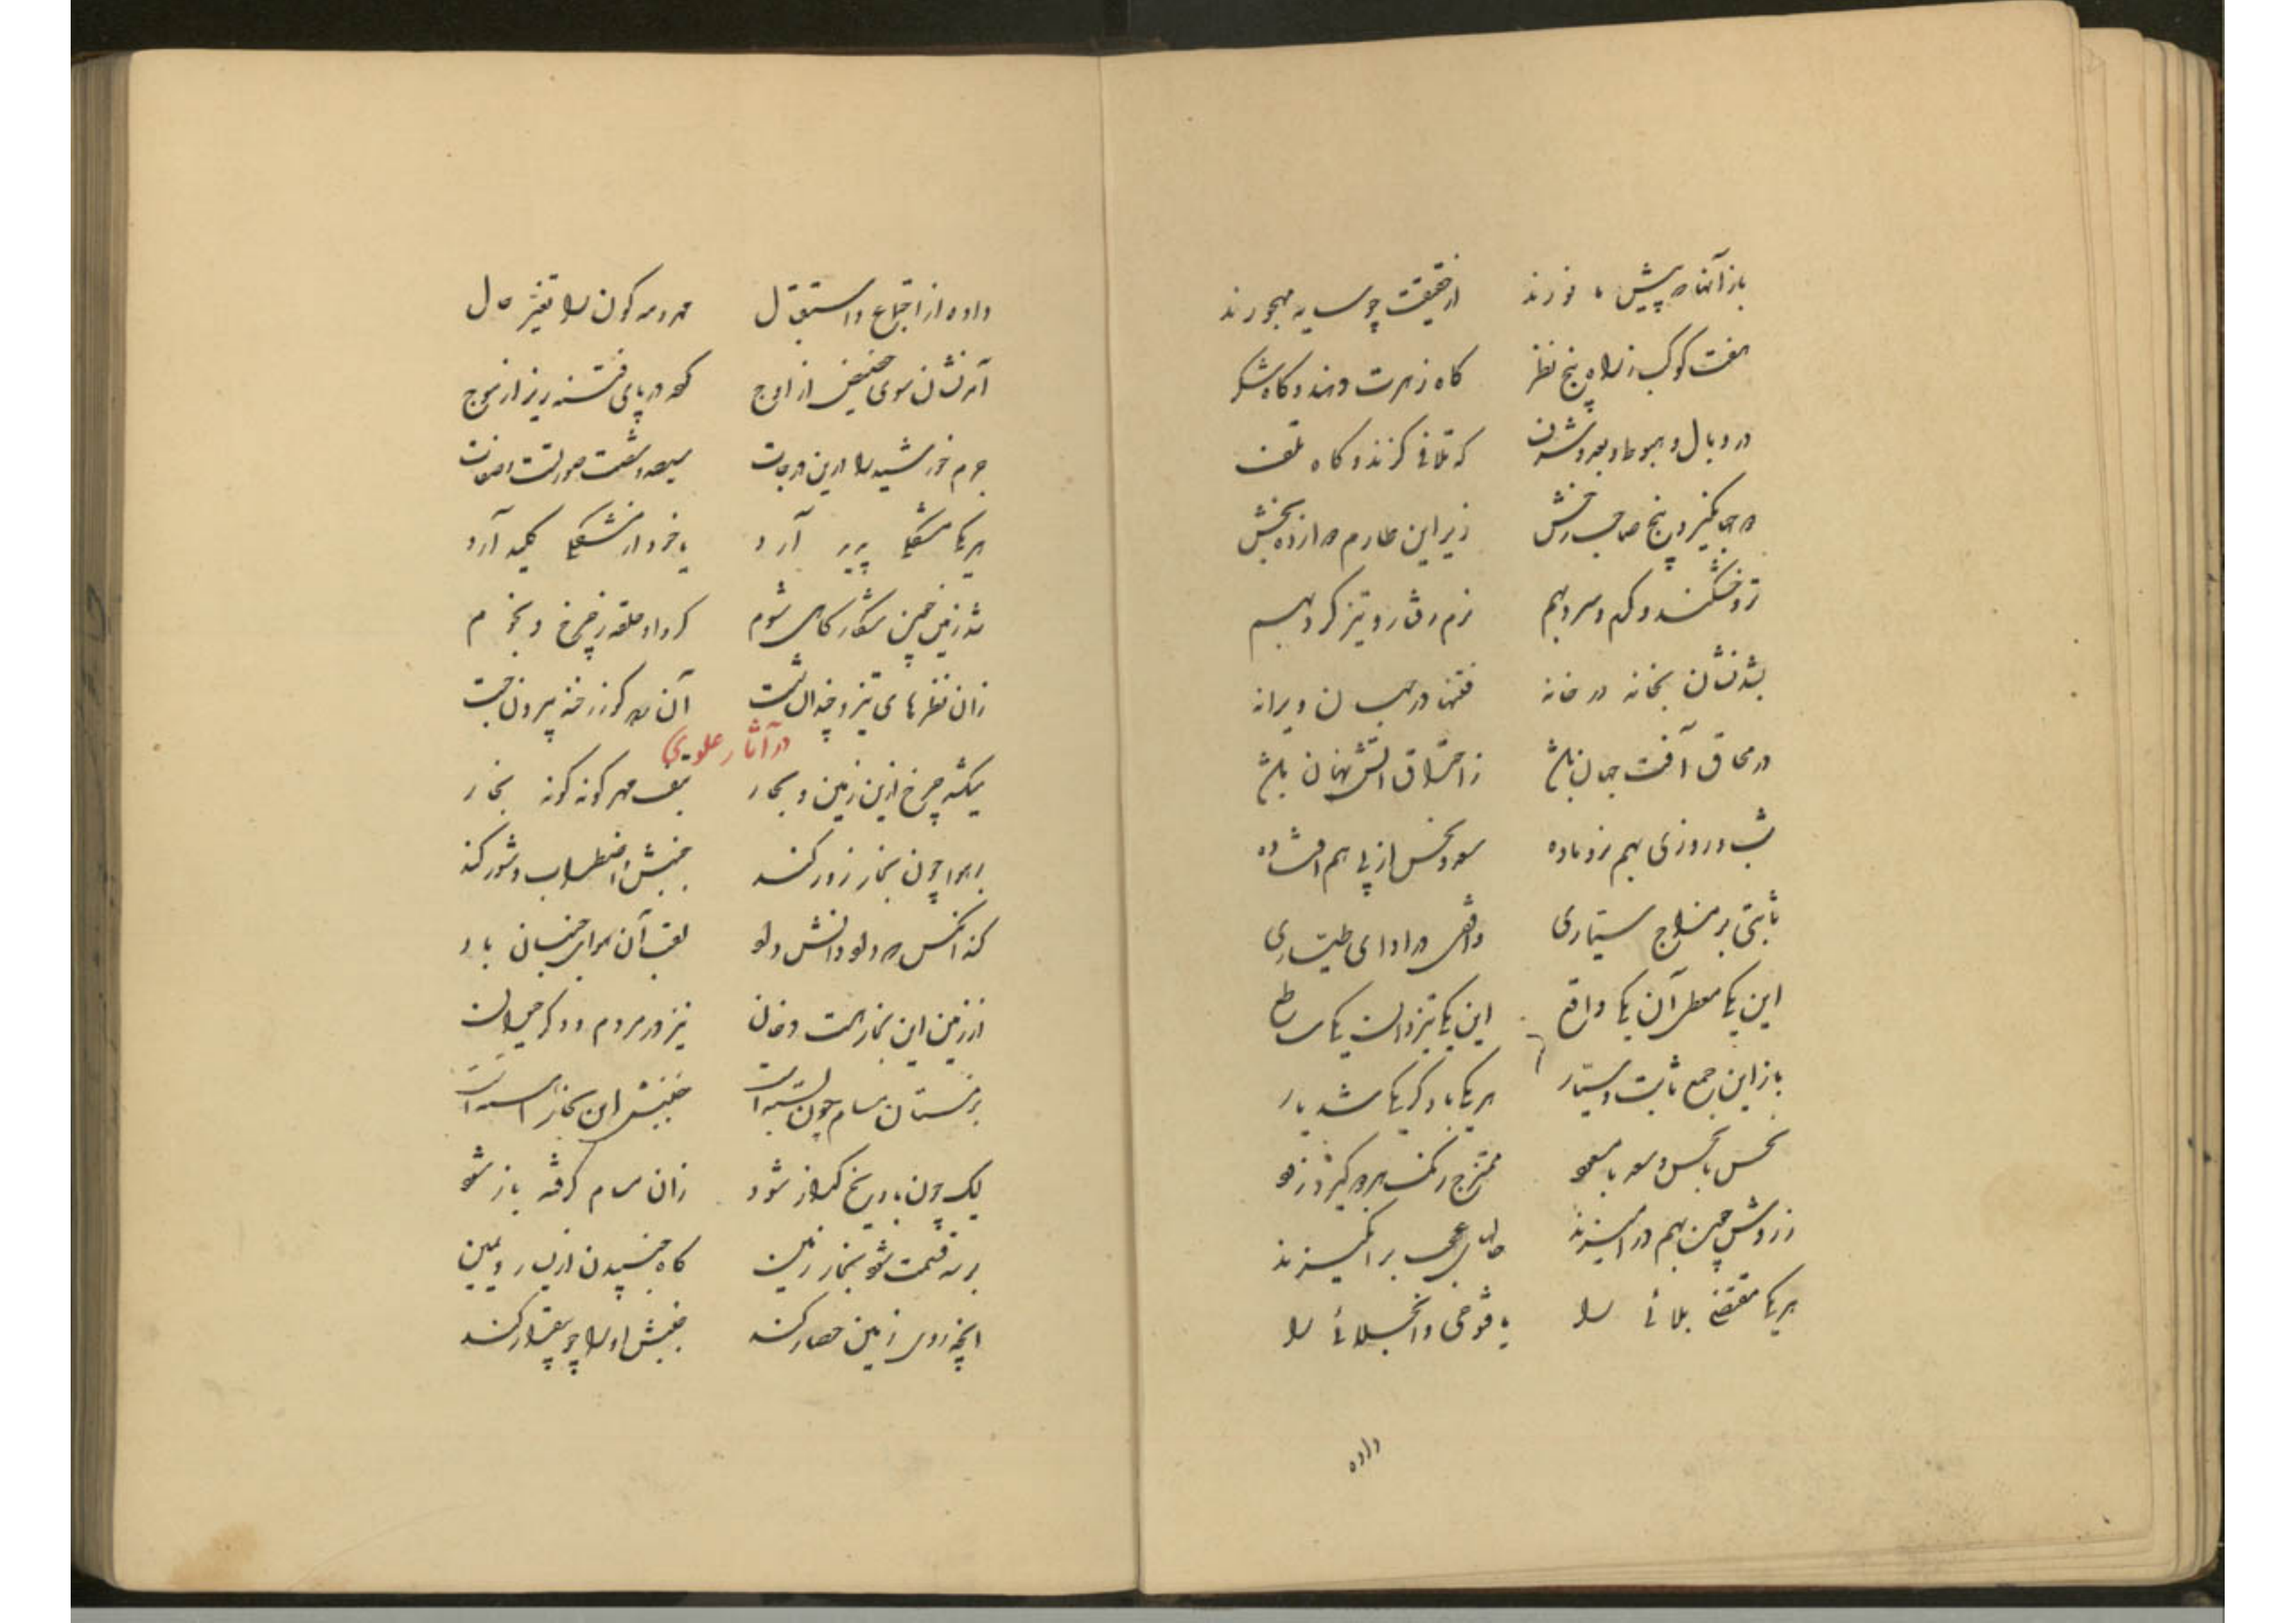 باز آنها که پیش ما نورند از حقیقت چو سایه مهجورند
هفت کوکب ز راه پنج نظر گاه زهرت دهند و گاه شکر
در وبال و هبوط و بعد و شرف که تلافی کنند و گاه تلف
زیر این طارم دوازده بخش
تر و خشکند و گرم و سرد بهم نرم رفتار و تیز گرد بهم
شدنشان خانه خانه در خانه فتنها در جهان ویرانه
در محاق آفت جهان باشد ز احتراق آتش نهان باشد
شب و روزی بهم نر و ماده سعد و نحس از پی هم افتاده
ثابتی بر مزاج سیاری واقعی در ادای طیاری
این یکی معطی آن یکی واقع این یکی تیز و آن یکی ساطع
باز این جمع ثابت و سیار هر یکی با دگر یکی شد یار
نحس با نحس و سعد با مسعود ممتزج
زر و مس چون بهم در آمیزند عجب بر انگیزند
هر یکی مقتضی بلائی را یا فتوحی و انجلائی را
داده
داده از اجتماع و استقبال مهر و مه کون را تغیر حال
آمدنشان سوی حضیض از اوج گه در پای فتنه ریز از موج
جرم خورشید را درین درجات سیصد و شصت صورتست و صفات
هر یکی مشکلی پدید آرد یا خود از مشکلی کلید آرد
زان نظرهای تیز و چه الست آن برد کو ز رخنه بیرون جست
در آثار علوی
میکشد چرخ ازین زمین و بحار بتف مهر گونه گونه بخار
بر هوا چون بخار زور کند جنبش و اضطراب و شور کند
کند آنکس که داد و دانش داد لقب آن هوای جنبان باد
از زمین این بخار هست و دخان نیز در مردم و دگر حیوان
در زمستان مسام چون بسته است جنبش این بخار آهسته است
لیک چون باد و یخ گداز شود زان مسام گرفته باز شود
بر سه قسمت شود بخار زمین گاه جنبیدن از یسار و یمین
آنچه روی زمین حصار کند جنبش او را چو بیقرار کند